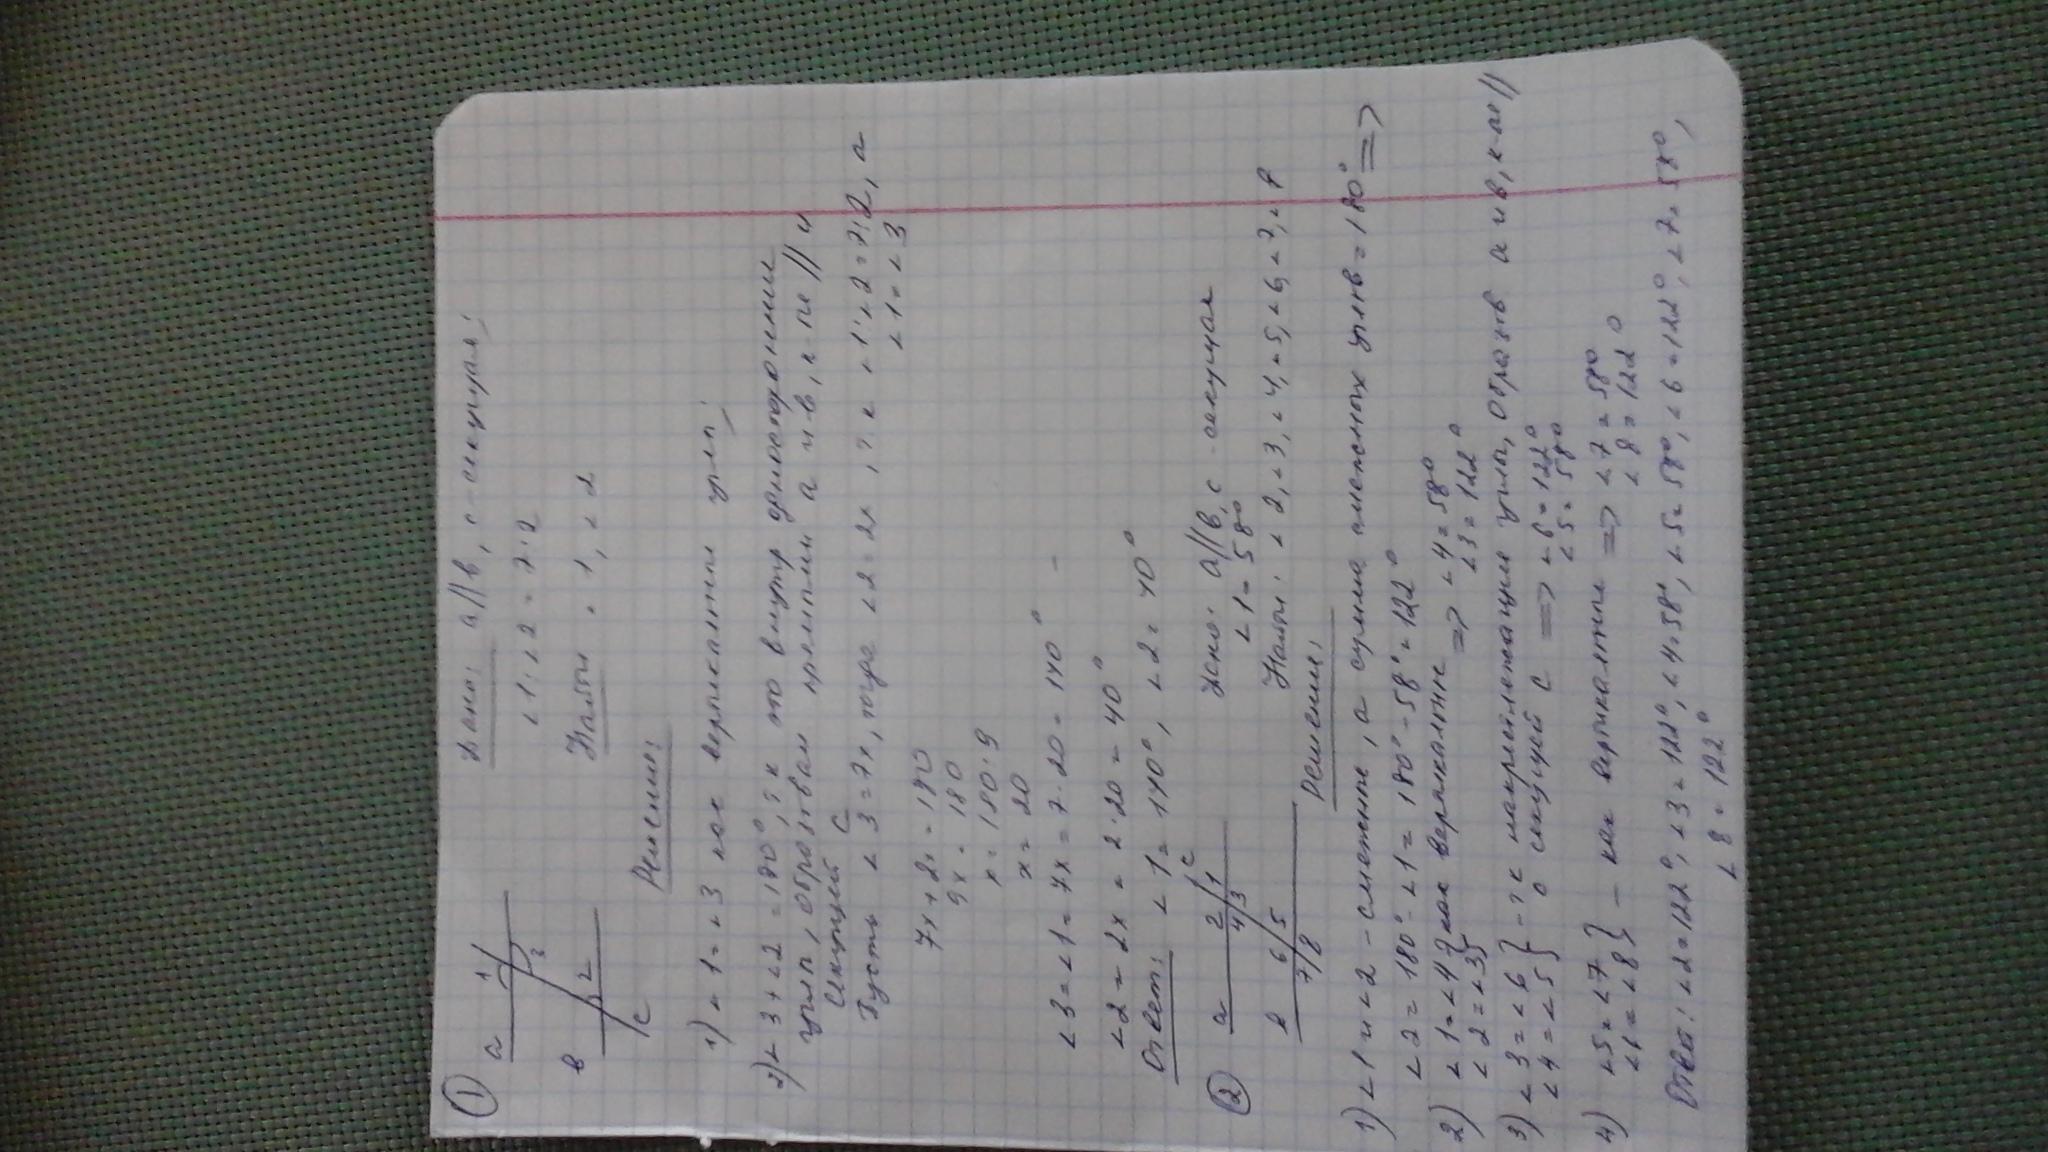 ①
a
1
3
в
2
c
Дано: a//в, c-секущая;
∠1:∠2=7:2
Найти ∠1, ∠2
Решение:
1) ∠1=∠3 как вертикальн углы;
2) ∠3+∠2=180°, т к это внутр односторонние
углы, образован прямыми a и в, к-ые // и
секущей c
Пусть ∠3=7x, тогда ∠2=2x, т. к ∠1:∠2=7:2, а
∠1=∠3
7x+2x=180
9x=180
x=180:9
x=20
∠3=∠1=7x=7·20=140°
∠2=2x=2·20=40°
Ответ: ∠1=140°, ∠2=40°
②
a 2 1 c
4 3
в 6 5
7 8
Дано: a//в, c-секущая
∠1=58°
Найти: ∠2,∠3,∠4,∠5,∠6,∠7,∠8
Решение:
1) ∠1 и ∠2 - смежные, а сумма смежных углов=180° =>
∠2=180°-∠1=180°-58°=122°
2) ∠1=∠4 } как вертикальные => ∠4=58°
∠2=∠3 ∠3=122°
3) ∠3=∠6 } - т к накрестлежащие углы, образов a и в, к-ые //
∠4=∠5 секущей c => ∠6=122°
∠5=58°
4) ∠5=∠7 } - как вертикальные => ∠7=58°
∠6=∠8 ∠8=122°
Ответ: ∠2=122°, ∠3=122°, ∠4=58°, ∠5=58°, ∠6=122°, ∠7=58°,
∠8=122°